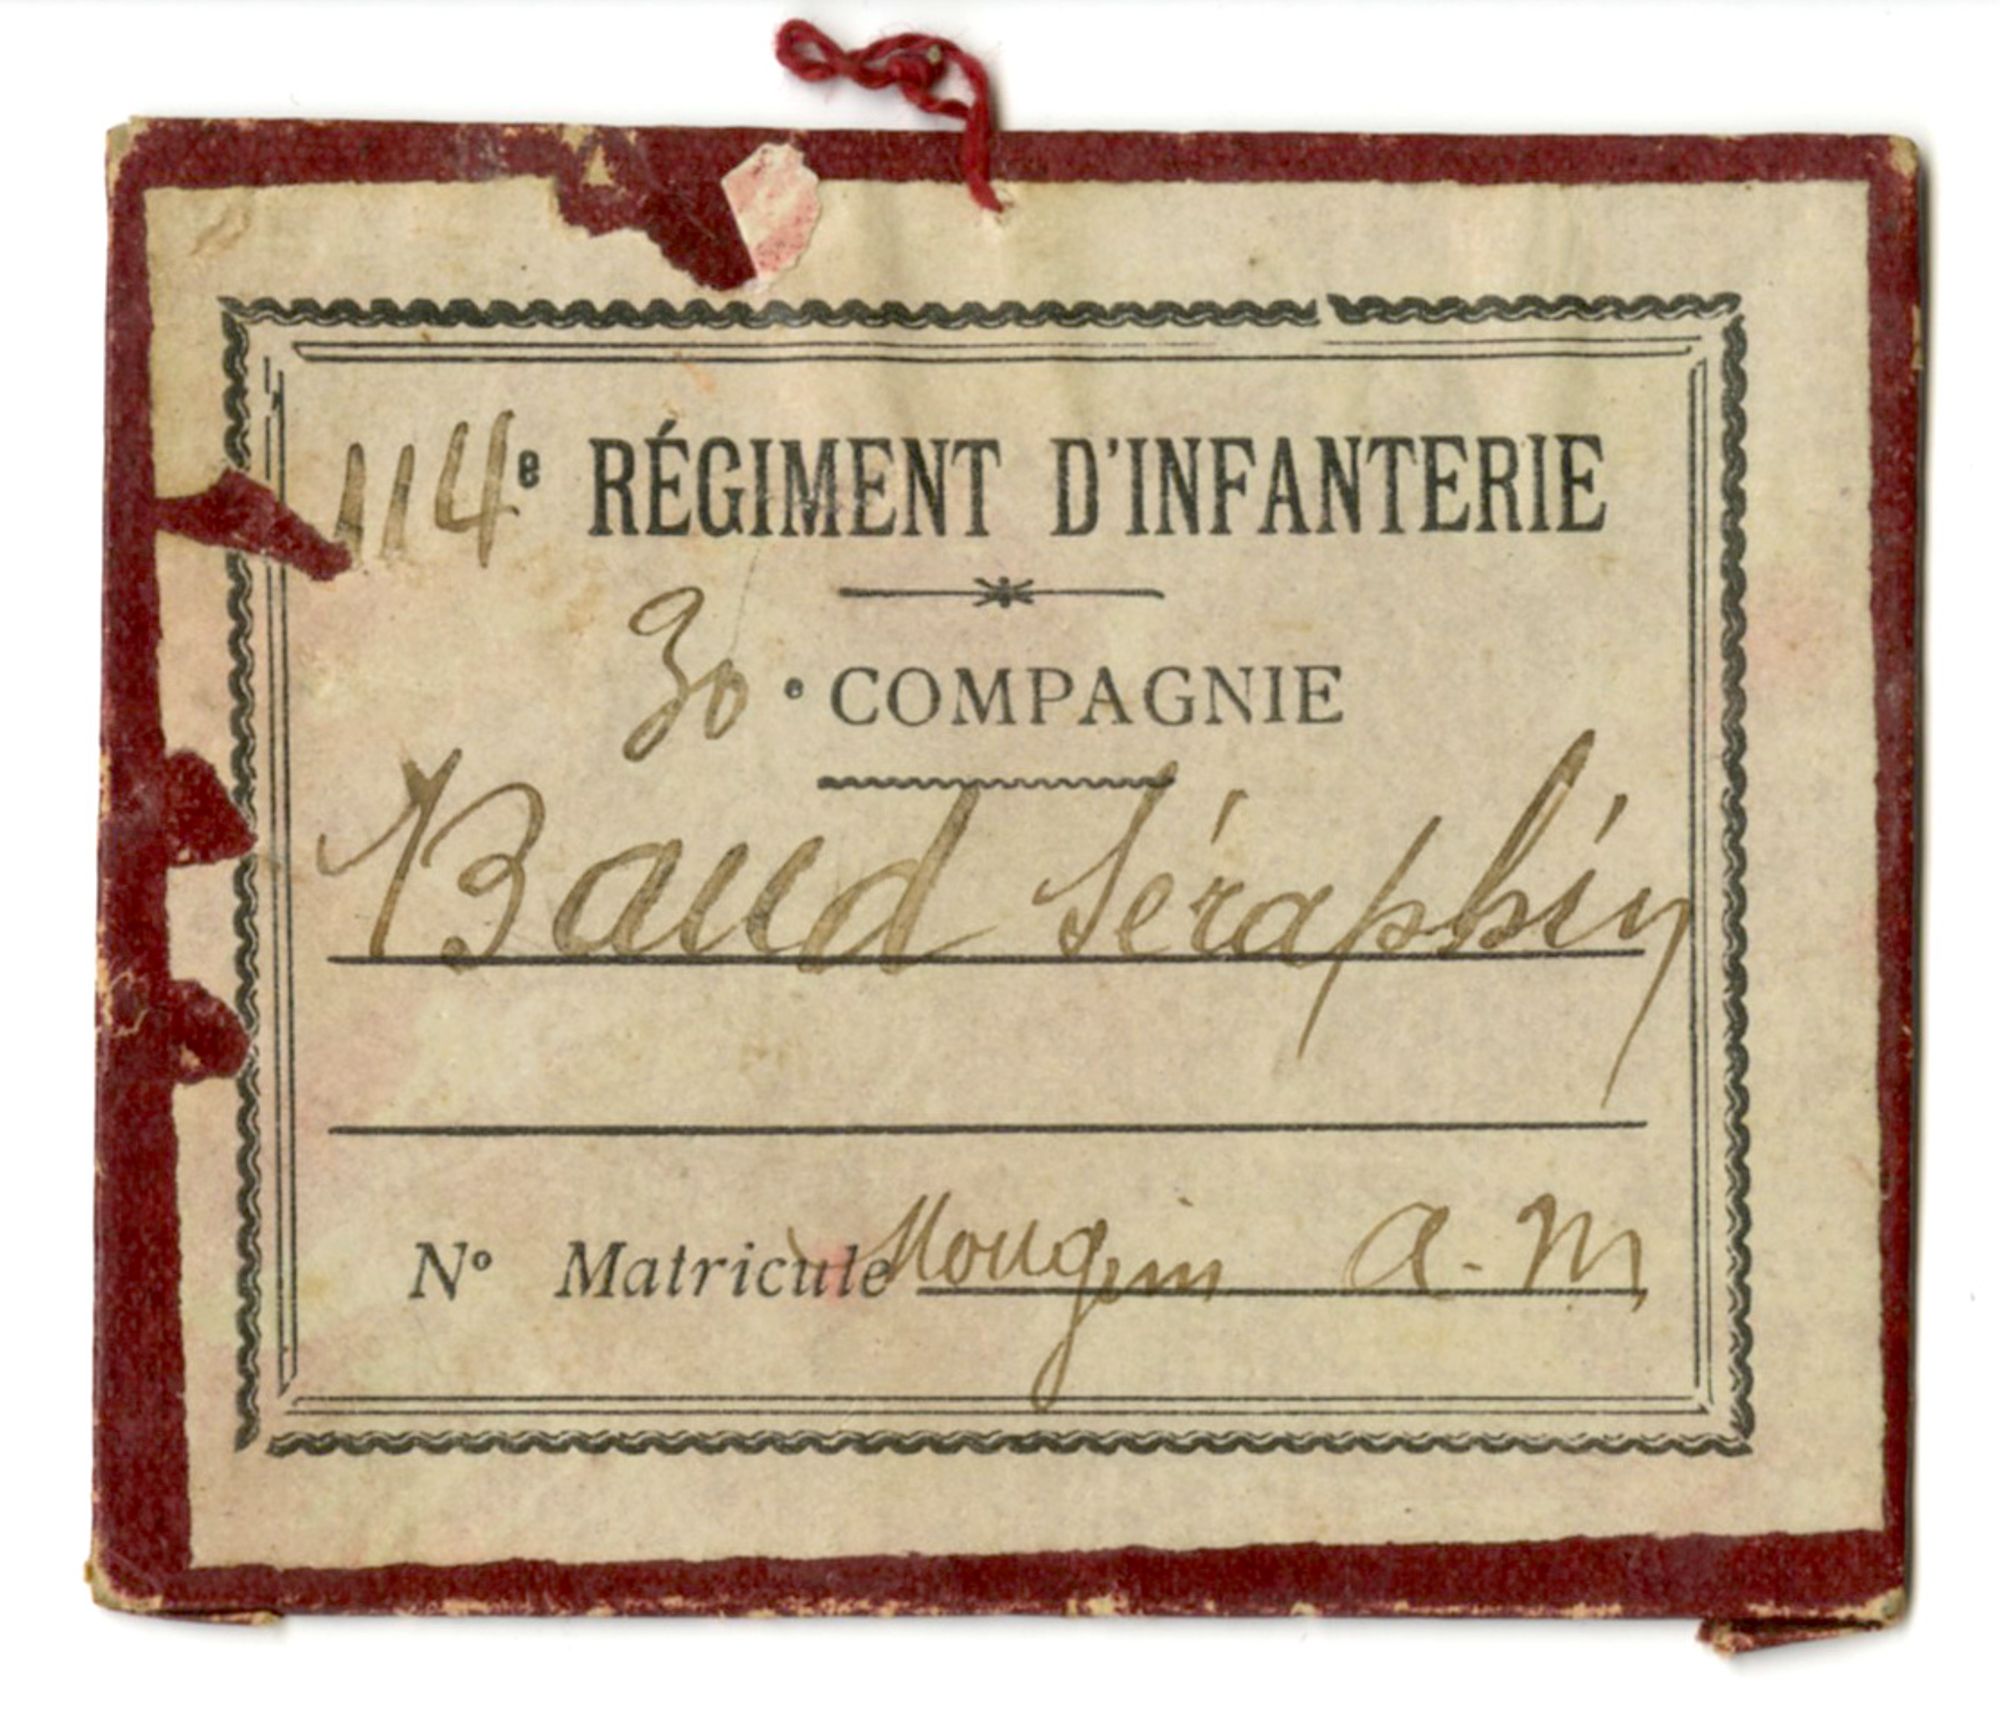 114e RÉGIMENT D'INFANTERIE
30e COMPAGNIE
Baud Séraphin
No Matricule Mougin A. M